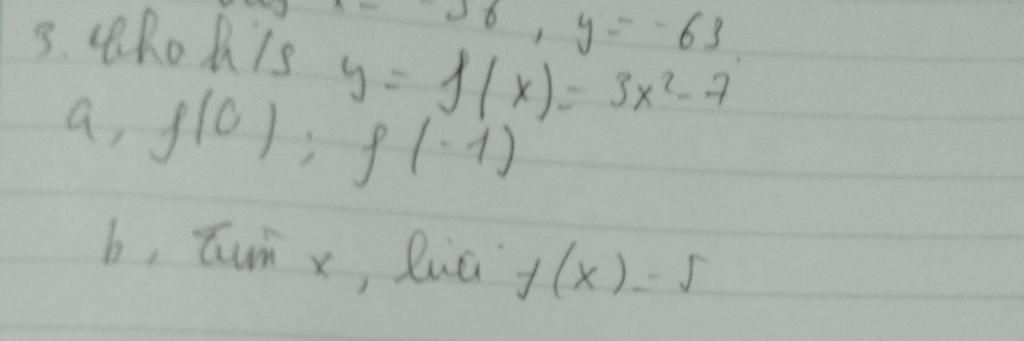 x = -36, y = -63
3. Cho h/s y = f(x) = 3x² - 7
a, f(0); f(-1)
b, Tìm x, biết f(x) = 5